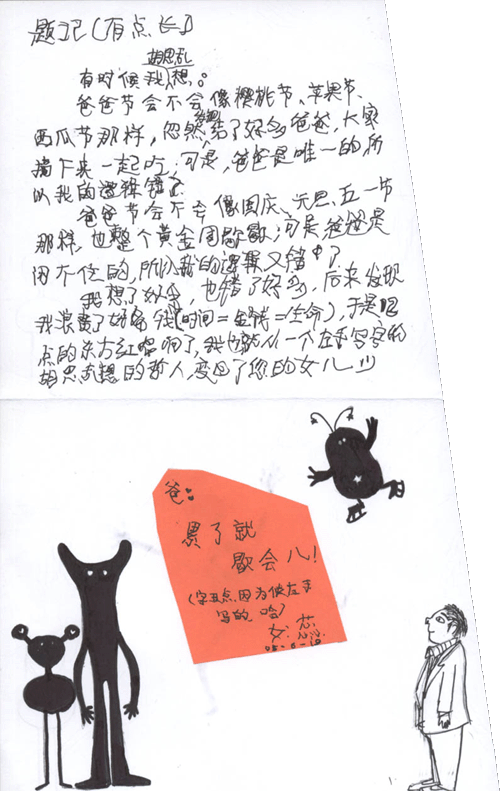 题记(有点长)
胡思乱
有时候我想。
爸爸节会不会像樱桃节、苹果节、
西瓜节那样，忽然结了好多爸爸，大家
摘下来一起吃，可是，爸爸是唯一的，所
以我的逻辑错了
爸爸节会不会像国庆、元旦、五一节
那样，也整个黄金周歇歇，可是爸爸是
闲不住的，所以我的逻辑又错了
我想了好多，也错了好多，后来发现
我浪费了好多钱(时间=金钱=生命)，于是12
点的东方红响了，我也就从一个左手写字的
胡思乱想的哲人，变回了您的女儿
爸
累了就
歇会儿!
(字丑点因为使左手
写的，哈)
女: